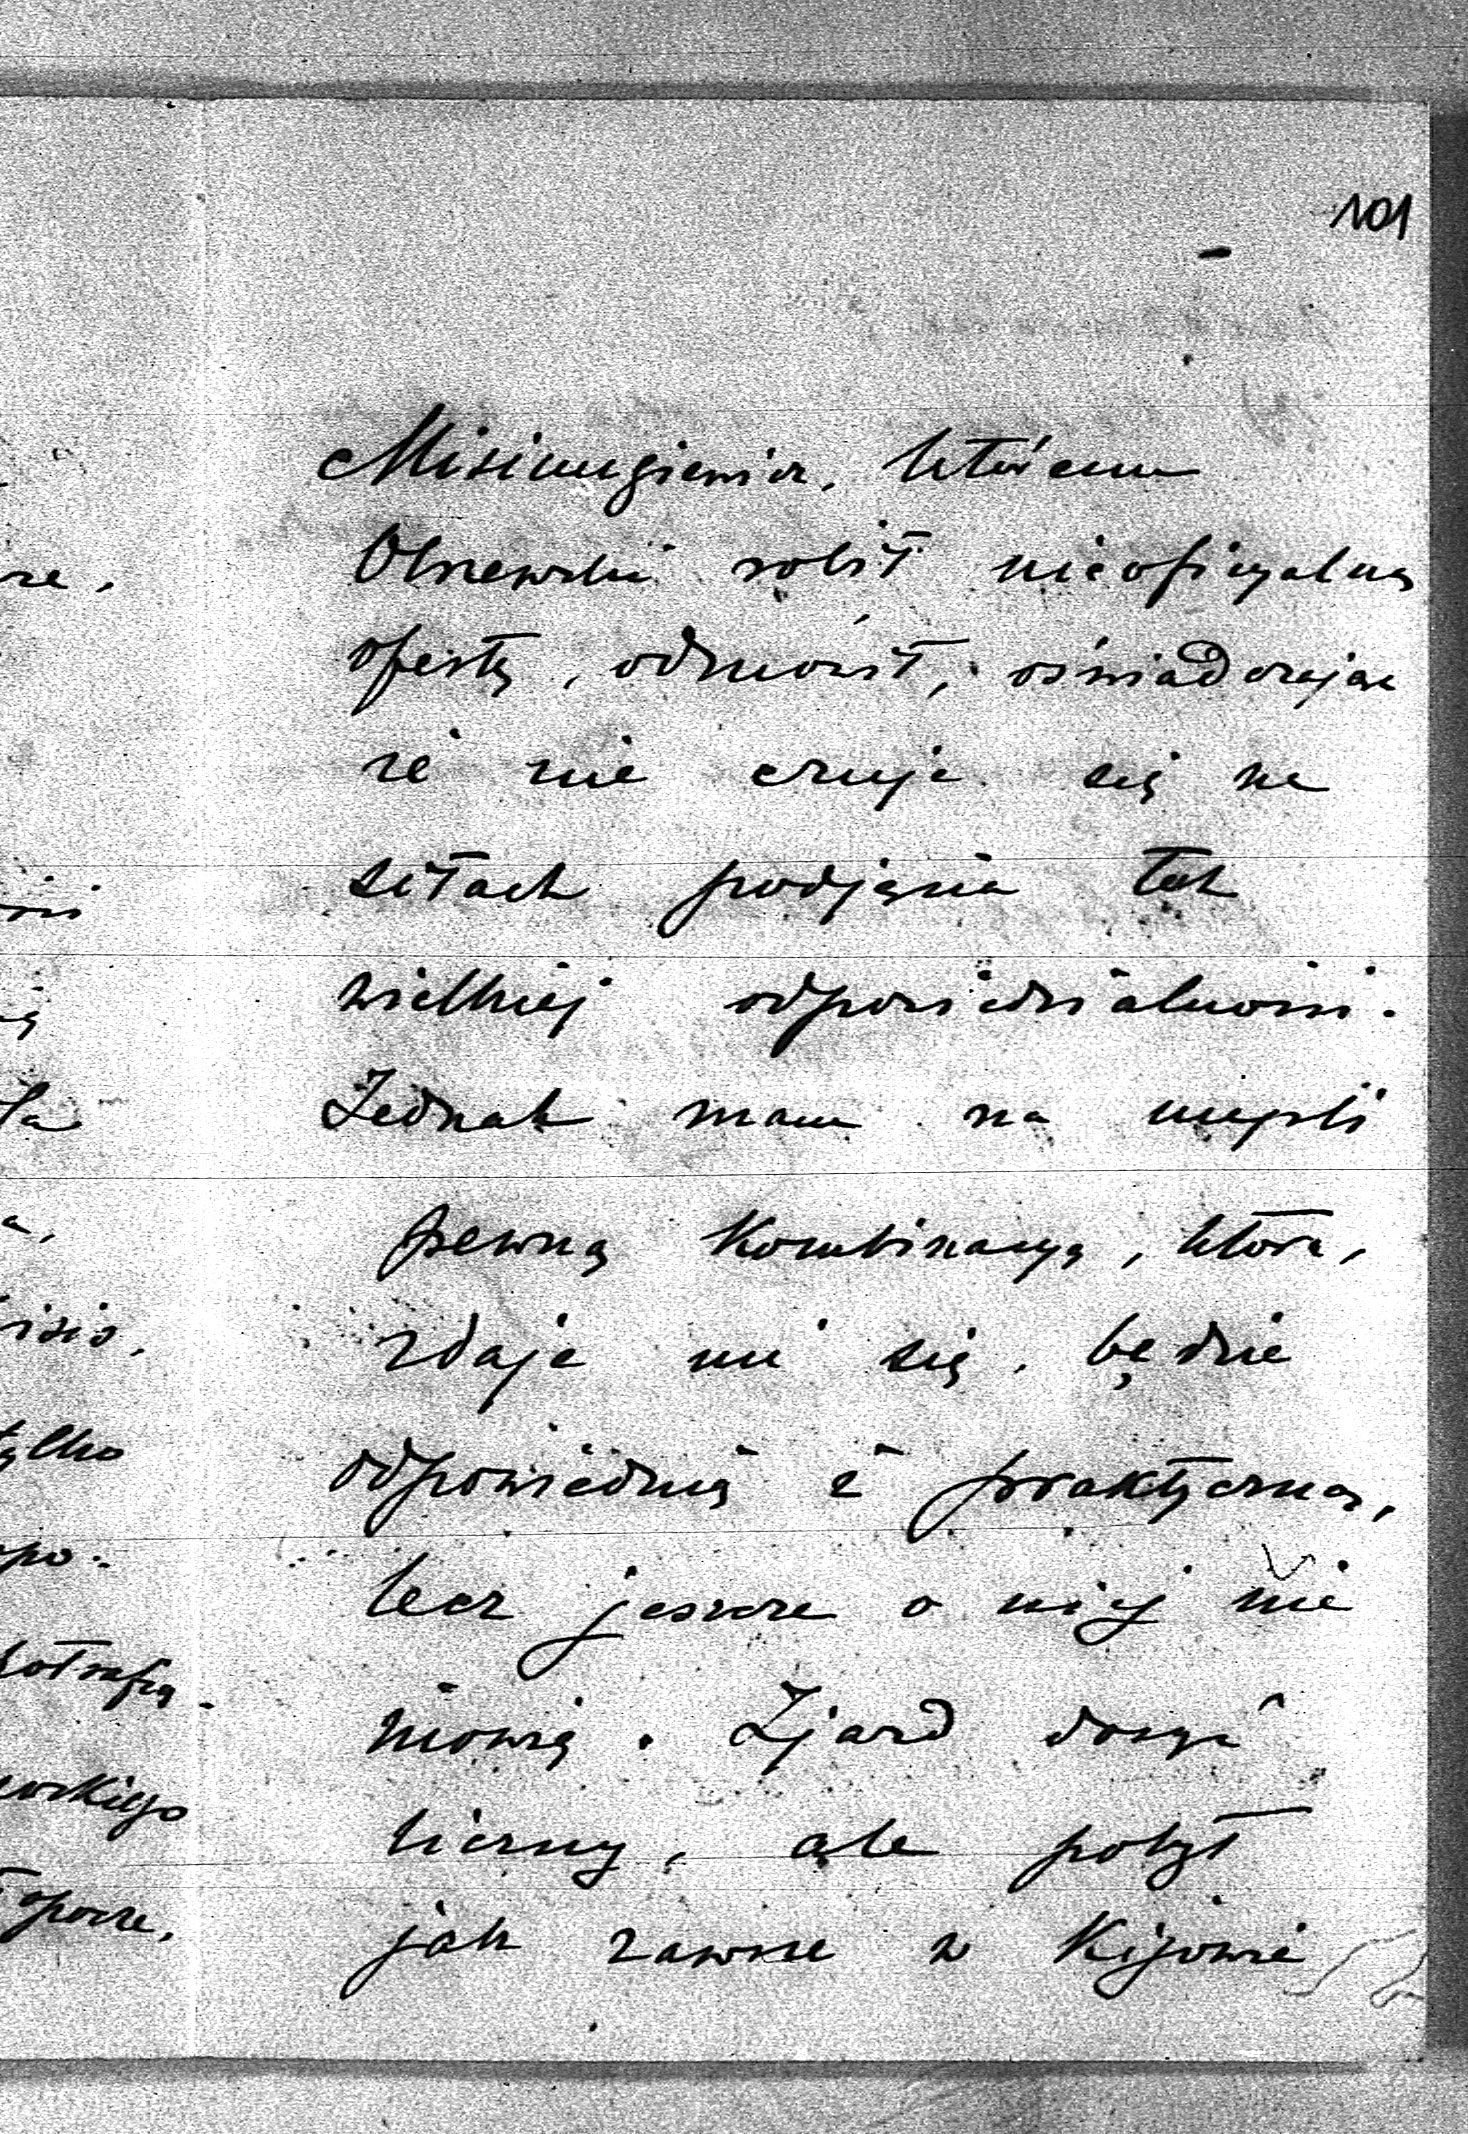 101
Misiungiewicz, któremu
Olszewski robił nieoficyalną
ofertę, odmówił, oświadczając
że nie czuje się na
siłach podjęcia tak
wielkiej odpowiedzialności.
Jednak mam na myśli
pewną kombinacyą, która,
zdaje mi się, będzie
odpowiednią i praktyczną,
lecz jeszcze o niej nie
mówię. Zjazd dosyć
liczny, ale pobyt
jak zawsze w Kijowie